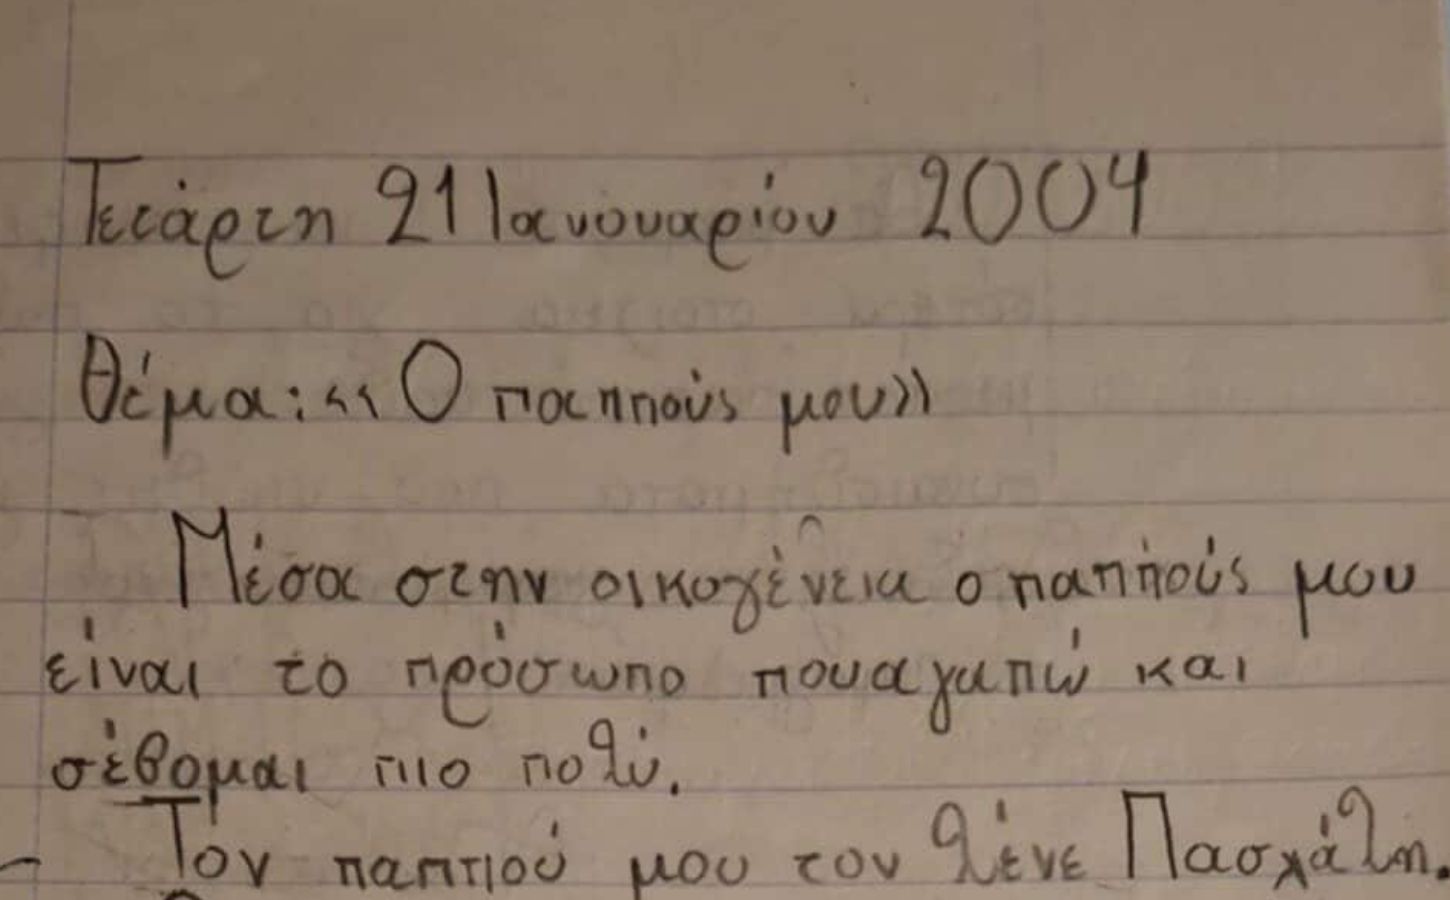 Τετάρτη 21 Ιανουαρίου 2004
Θέμα: «Ο παππούς μου»
Μέσα στην οικογένεια ο παππούς μου
είναι το πρόσωπο που αγαπώ και
σέβομαι πιο πολύ.
Τον παππού μου τον λένε Πασχάλη.